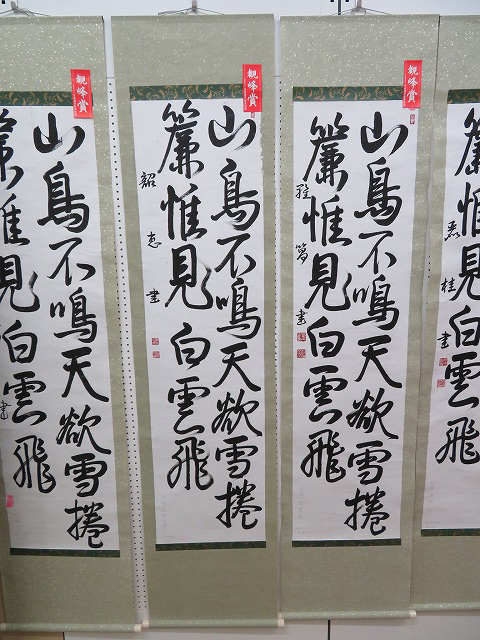 簾惟見白雲飛
桂書
観峰賞
山鳥不鳴天欲雪捲
簾惟見白雲飛
書
観峰賞
山鳥不鳴天欲雪捲
簾惟見白雲飛
韶恵書
観峰賞
山鳥不鳴天欲雪捲
簾惟見白雲飛
書